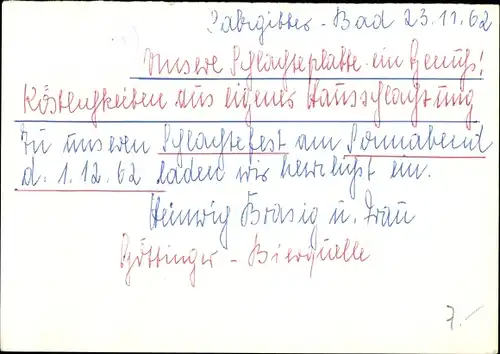 Salzgitter-Bad 23.11.62
Unsere Schlachteplatte ein Genuß!
Köstlichkeiten aus eigener Hausschlachtung
Zu unserem Schlachtefest am Sonnabend
d. 1.12.62 laden wir herzlichst ein.
Heinrich Brasig u. Frau
Göttinger - Bierquelle
7.-